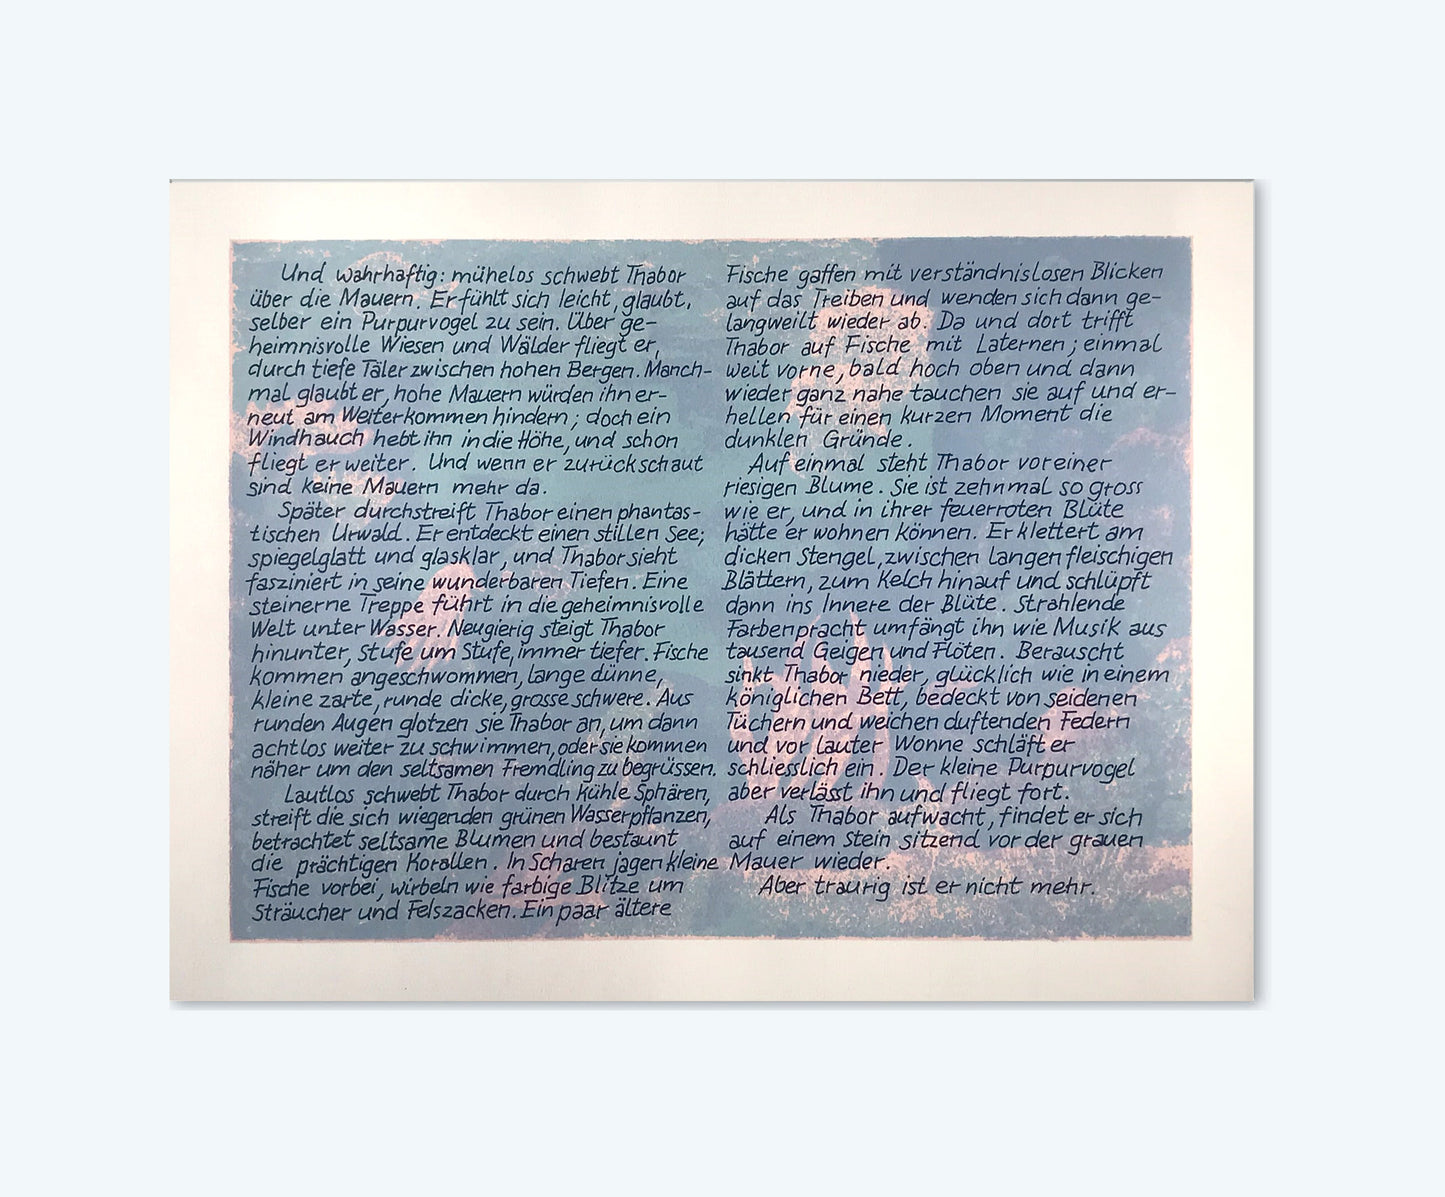 Und wahrhaftig: mühelos schwebt Thabor
über die Mauern. Er fühlt sich leicht, glaubt,
selber ein Purpurvogel zu sein. Über ge-
heimnisvolle Wiesen und Wälder fliegt er,
durch tiefe Täler zwischen hohen Bergen. Manch-
mal glaubt er, hohe Mauern würden ihn er-
neut am Weiterkommen hindern; doch ein
Windhauch hebt ihn in die Höhe, und schon
fliegt er weiter. Und wenn er zurückschaut
sind keine Mauern mehr da.
Später durchstreift Thabor einen phantas-
tischen Urwald. Er entdeckt einen stillen See;
spiegelglatt und glasklar, und Thabor sieht
fasziniert in seine wunderbaren Tiefen. Eine
steinerne Treppe führt in die geheimnisvolle
Welt unter Wasser. Neugierig steigt Thabor
hinunter, Stufe um Stufe, immer tiefer. Fische
kommen angeschwommen, lange dünne,
kleine zarte, runde dicke, grosse schwere. Aus
runden Augen glotzen sie Thabor an, um dann
achtlos weiter zu schwimmen, oder sie kommen
näher um den seltsamen Fremdling zu begrüssen.
Lautlos schwebt Thabor durch kühle Sphären,
streift die sich wiegenden grünen Wasserpflanzen,
betrachtet seltsame Blumen und bestaunt
die prächtigen Korallen. In Scharen jagen kleine
Fische vorbei, wirbeln wie farbige Blitze um
Sträucher und Felszacken. Ein paar ältere
Fische gaffen mit verständnislosen Blicken
auf das Treiben und wenden sich dann ge-
langweilt wieder ab. Da und dort trifft
Thabor auf Fische mit Laternen; einmal
weit vorne, bald hoch oben und dann
wieder ganz nahe tauchen sie auf und er-
hellen für einen kurzen Moment die
dunklen Gründe.
Auf einmal steht Thabor vor einer
riesigen Blume. Sie ist zehnmal so gross
wie er, und in ihrer feuerroten Blüte
hätte er wohnen können. Er klettert am
dicken Stengel, zwischen langen fleischigen
Blättern, zum Kelch hinauf und schlüpft
dann ins Innere der Blüte. Strahlende
Farbenpracht umfängt ihn wie Musik aus
tausend Geigen und Flöten. Berauscht
sinkt Thabor nieder, glücklich wie in einem
königlichen Bett, bedeckt von seidenen
Tüchern und weichen duftenden Federn
und vor lauter Wonne schläft er
schliesslich ein. Der kleine Purpurvogel
aber verlässt ihn und fliegt fort.
Als Thabor aufwacht, findet er sich
auf einem Stein sitzend vor der grauen
Mauer wieder.
Aber traurig ist er nicht mehr.